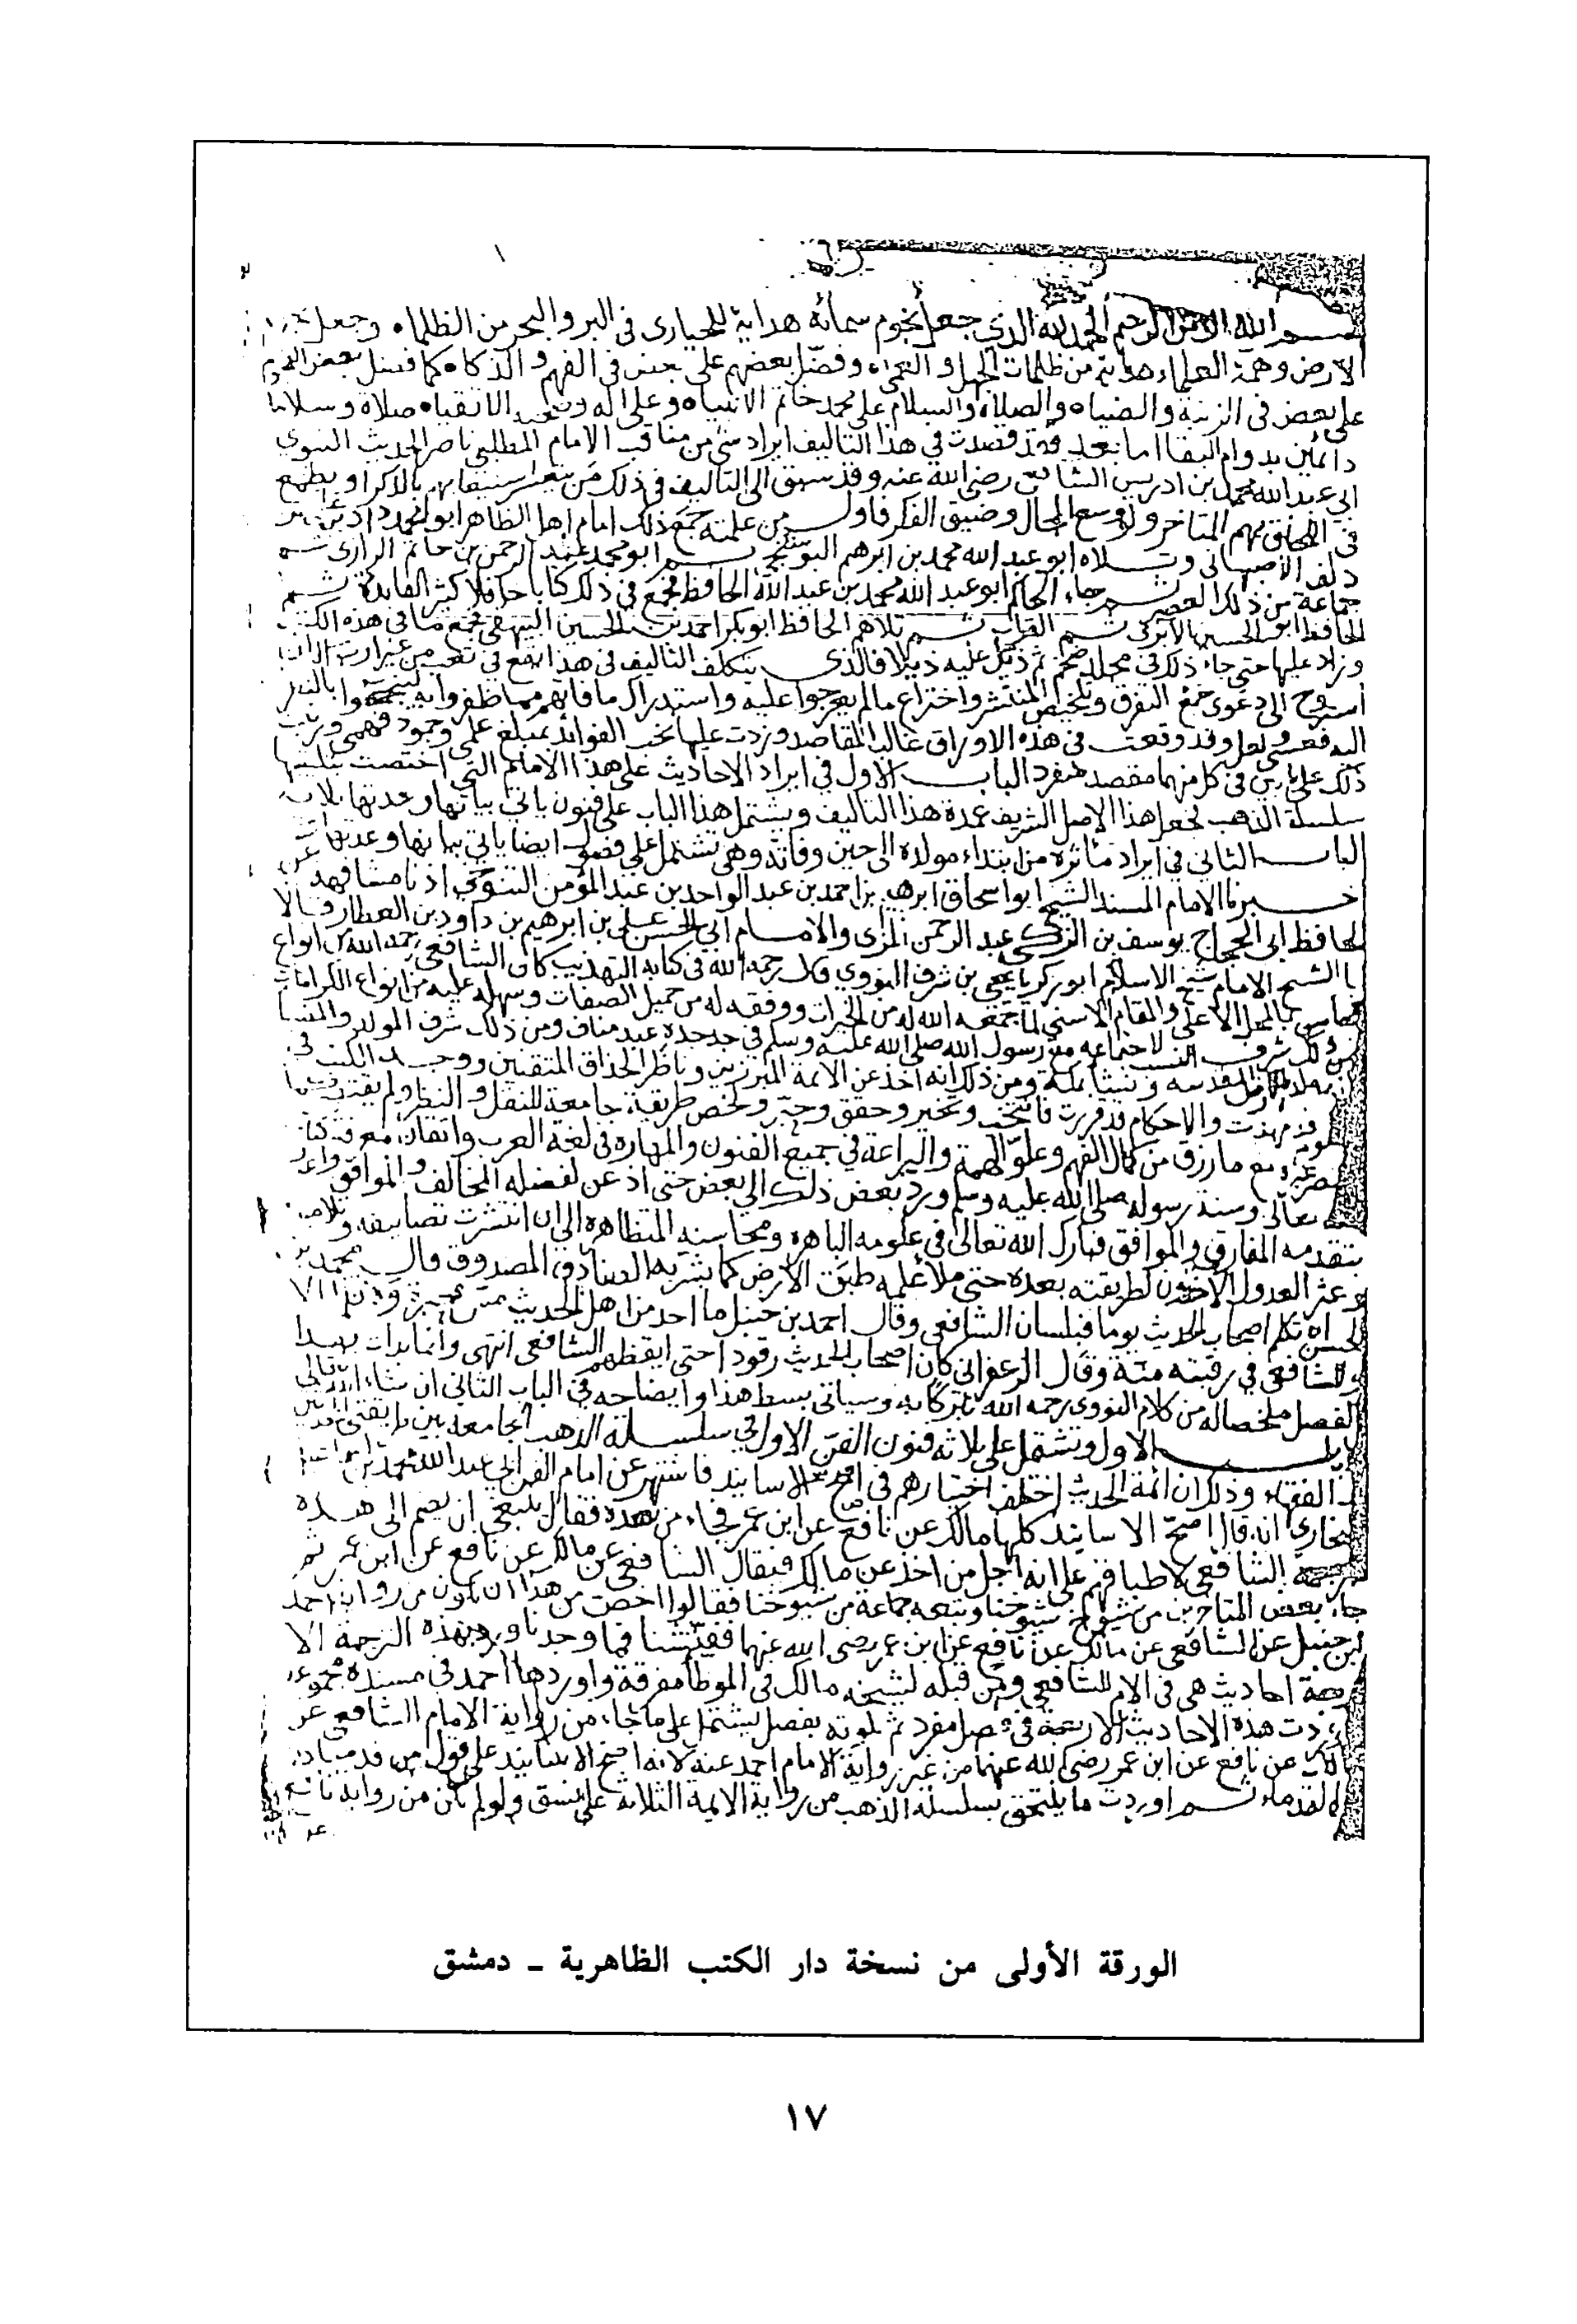 بسم الله الرحمن الرحيم الحمد لله الذي جعل نجوم سمائه هداية للحيارى في البر والبحر من الظلماء وجعل نجوم
الارض وهم العلماء هداية من ظلمات الجهل والعماء وفضل بعضهم على بعض في الفهم والذكاء كما فضل بعض النجوم
على بعض في الزينة والضياء والصلاة والسلام على محمد خاتم الانبياء وعلى اله وصحبه الاتقياء صلاة وسلاما
دائمين بدوام البقا اما بعد فقد قصدت في هذا التاليف ايراد شي من مناقب الامام المطلبي ناصر الحديث النبوي
ابي عبد الله محمد بن ادريس الشافعي رضي الله عنه وقد سبق الى التاليف في ذلك من يتعسر استيعابهم بالذكر او يطمع
في اللحاق بهم المتاخر ولو وسع المجال وضيق الفكر فاول من علمته جمع ذلك امام اهل الظاهر ابو محمد داود بن علي بن
خلف الاصبهاني وتلاه ابو عبد الله محمد بن ابرهيم البوشنجي ثم ابو محمد عبد الرحمن بن حاتم الرازي ثم
جماعة من ذلك العصر ثم جاء الحاكم ابو عبد الله محمد بن عبد الله الحافظ فجمع في ذلك كتابا حافلا كثير الفايدة ثم
الحافظ ابو الحسين الابري ثم القراب ثم تلاهم الحافظ ابو بكر احمد بن الحسين البيهقي فجمع ما في هذه الكتب
وزاد عليها حتى جاء ذلك في مجلد ضخم ثم ذيل عليه ذيلا فالذي يتكلف التاليف في هذا يقع في تعب من عبارته الا ان
استروح الى دعوى جمع المفرق وتلخيص المنتشر واختراع ما لم يعرجوا عليه واستدراك ما فاتهم مما ظفروا به
فعسى ولعل وقد وقعت في هذه الاوراق غالب المقاصد وزدت عليها نخب الفوائد بمبلغ علمي وجود فهمي ورتبت
ذلك على بابين في كل منهما مقصد منفرد الباب الاول في ايراد الاحاديث على هذا الامام التي اختصت بتلقيبها
سلسلة الذهب لجعل هذا الاصل الشريف عمدة هذا التاليف ويشتمل هذا الباب على فنون ياتي بيانها وعدتها ثلاثة
الباب الثاني في ايراد مآثره من ابتداء مولده الى حين وفاته وهي تشتمل على فصول ايضا ياتي بيانها وعدتها
اخبرنا الامام المسند الشيخ ابو اسحاق ابرهيم بن احمد بن عبد الواحد بن عبد المؤمن التنوخي اذنا مشافهة عن
الحافظ ابي الحجاج يوسف بن الزكي عبد الرحمن المزي والامام ابي الحسن علي بن ابرهيم بن داود بن العطار قالا
انا الشيخ الامام شيخ الاسلام ابو زكريا يحيى بن شرف النووي قال رحمه الله في كتابه التهذيب كان الشافعي رحمه الله من انواع
المحاسن بالمحل الاعلى والمقام الاسنى لما جمعه الله له من الخيرات ووفقه له من جميل الصفات وسهله عليه من انواع الكرامات
فمن ذلك شرف النسب لاجتماعه مع رسول الله صلى الله عليه وسلم في جد جده عبد مناف ومن ذلك شرف المولد والمنشا
المقدسة ونشأ بمكة ومن ذلك انه اخذ عن الائمة المبرزين وناظر الحذاق المتقنين ووجد الكتب قد
قد مهدت والاحكام قد قررت فانتخب وتخير وحقق وحبر ولخص طريقة جامعة للنقل والنظر ولم يقتصر
مع ما رزق من كمال الفهم وعلو الهمة والبراعة في جميع الفنون والمهارة في لغة العرب واتقان معرفة كتاب
الله تعالى وسنة رسوله صلى الله عليه وسلم ورد بعض ذلك الى بعض حتى اذعن لفضله المخالف والموافق واعترف
بتقدمه المفارق والموافق فبارك الله تعالى في علومه الباهرة ومحاسنه المتظاهرة الى ان انتشرت تصانيفه وتلامذته
وعثر العدول الآخذون لطريقته بعده حتى ملأ علمه طبق الارض كما بشر به الصادق المصدوق قال محمد بن
الحسن ان تكلم اصحاب الحديث يوما فبلسان الشافعي وقال احمد بن حنبل ما احد من اهل الحديث مس محبرة ولا قلما الا
وللشافعي في رقبته منة وقال الزعفراني كان اصحاب الحديث رقودا حتى ايقظهم الشافعي انتهى وانما بدات بهذا
الفصل ملخصا له من كلام النووي رحمه الله تبركا به وسياتي بسط هذا وايضاحه في الباب الثاني ان شاء الله تعالى
الباب الاول ويشتمل على ثلاثة فنون الفن الاول في سلسلة الذهب الجامعة بين
الفقهاء وذلك ان ائمة الحديث اختلف اختيارهم في اصح الاسانيد فاشتهر عن امام الفن ابي عبد الله محمد بن اسماعيل
البخاري انه قال اصح الاسانيد كلها مالك عن نافع عن ابن عمر فجاء من بعده فقال ينبغي ان يضم الى هذه
الترجمة الشافعي لاطباقهم على انه اجل من اخذ عن مالك فيقال الشافعي عن مالك عن نافع عن ابن عمر ثم
جاء بعض المتاخرين من شيوخ شيوخنا وتبعه جماعة من شيوخنا فقالوا اخص من هذا ان يكون من رواية احمد
بن حنبل عن الشافعي عن مالك عن نافع عن ابن عمر رضي الله عنهما ففتشنا فما وجدنا ورد بهذه الترجمة الا
اربعة احاديث هي في الام للشافعي ومن قبله لشيخه مالك في الموطأ مفرقة واوردها احمد في مسنده مجموعة
فاوردت هذه الاحاديث الاربعة في فصل مفرد ثم تلوته بفصل يشتمل على ما جاء من رواية الامام الشافعي عن
مالك عن نافع عن ابن عمر رضي الله عنهما من غير رواية الامام احمد عنه لانه اصح الاسانيد على قول من قدمناه
من القدماء ثم اوردت ما يلتحق بسلسلة الذهب من رواية الايمة الثلاثة على نسق ولو لم تكن من رواية نافع
الورقة الأولى من نسخة دار الكتب الظاهرية ـ دمشق
١٧